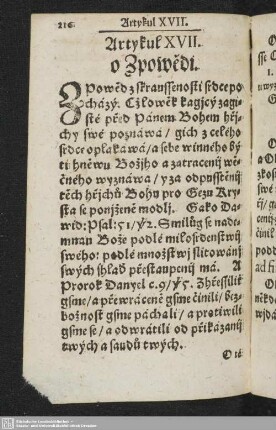 216 Artykul XVII.
Artykul XVII.
o Zpowědi.
ZPowěd z skraussenosti srdce po
cházý. Cžlowěk kagjcý zagi-
sté před Pánem Bohem hřj-
chy swé poznáwá / gich z celého
srdce oplakáwá / a sebe winného bý-
ti hněwu Božjho a zatracenij wě-
čného wyznáwá / y za odpusstěnij
těch hřjchů Bohu pro Gezu Kry-
sta se ponjženě modlj. Gako Da-
wid: Psal: 51/ ꝟ2. Smilůg se nade-
mnau Bože podlé milosrdenstwij
swého: podlé množstwj slitowánij
swých shlaď přestaupenij má. A
Prorok Danyel c. 9/ ꝟ5. Zhřessilit
gsme / a přewráceně gsme činili / bez-
božnost gsme páchali / a protiwili
gsme se / a odwrátili od přikázanij
twých a saudů twých.
O té